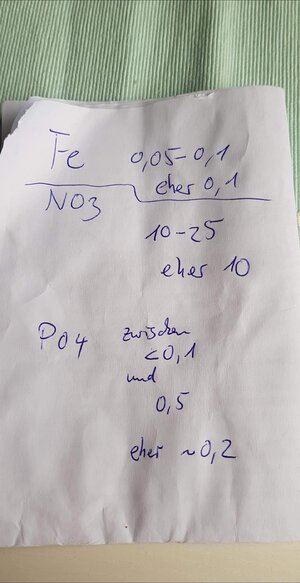 Fe 0,05-0,1
eher 0,1
NO3
10-25
eher 10
PO4 zwischen
<0,1
und
0,5
eher ~0,2